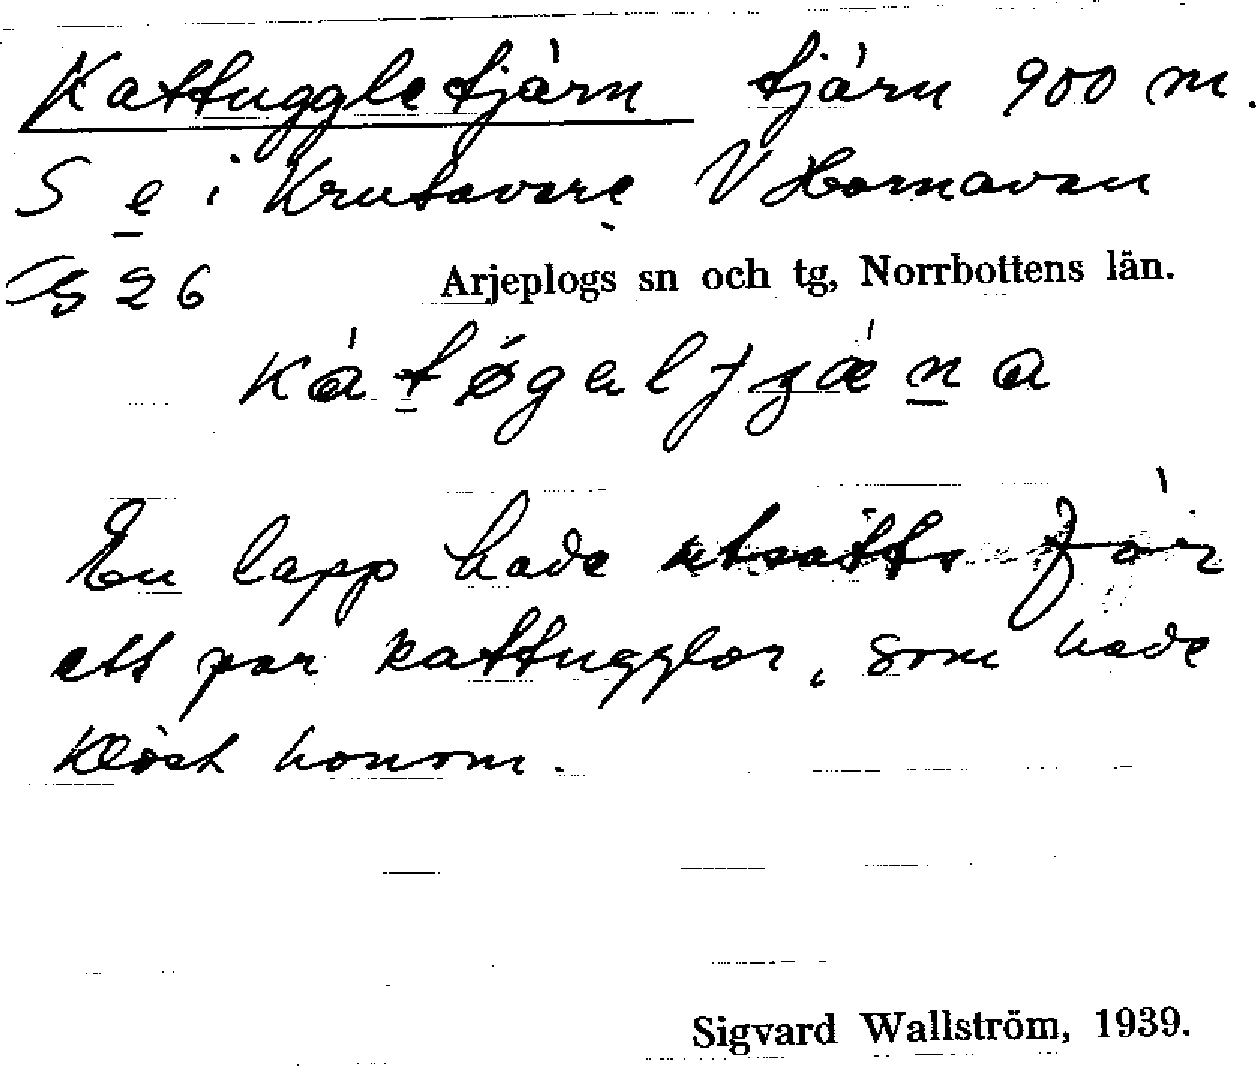 Kattuggletjärn tjärn 900 m.
S e i Krutavare V Hornavan
G 26
Arjeplogs sn och tg, Norrbottens län.
En lapp hade utsatts för
ett par kattugglor, som hade
klöst honom.
Sigvard Wallström, 1939.